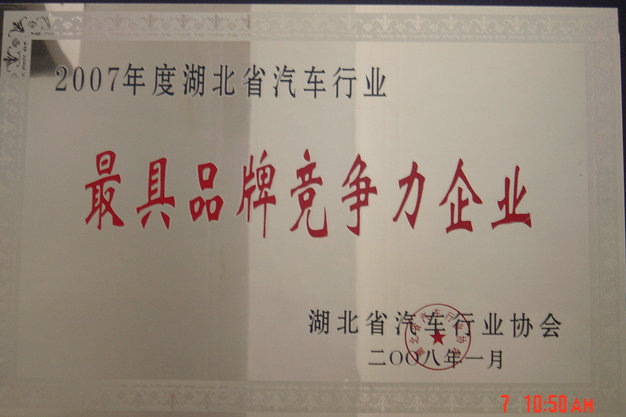 2007年度湖北省汽车行业
最具品牌竞争力企业
湖北省汽车行业协会
二〇〇八年一月
7 10:50 AM